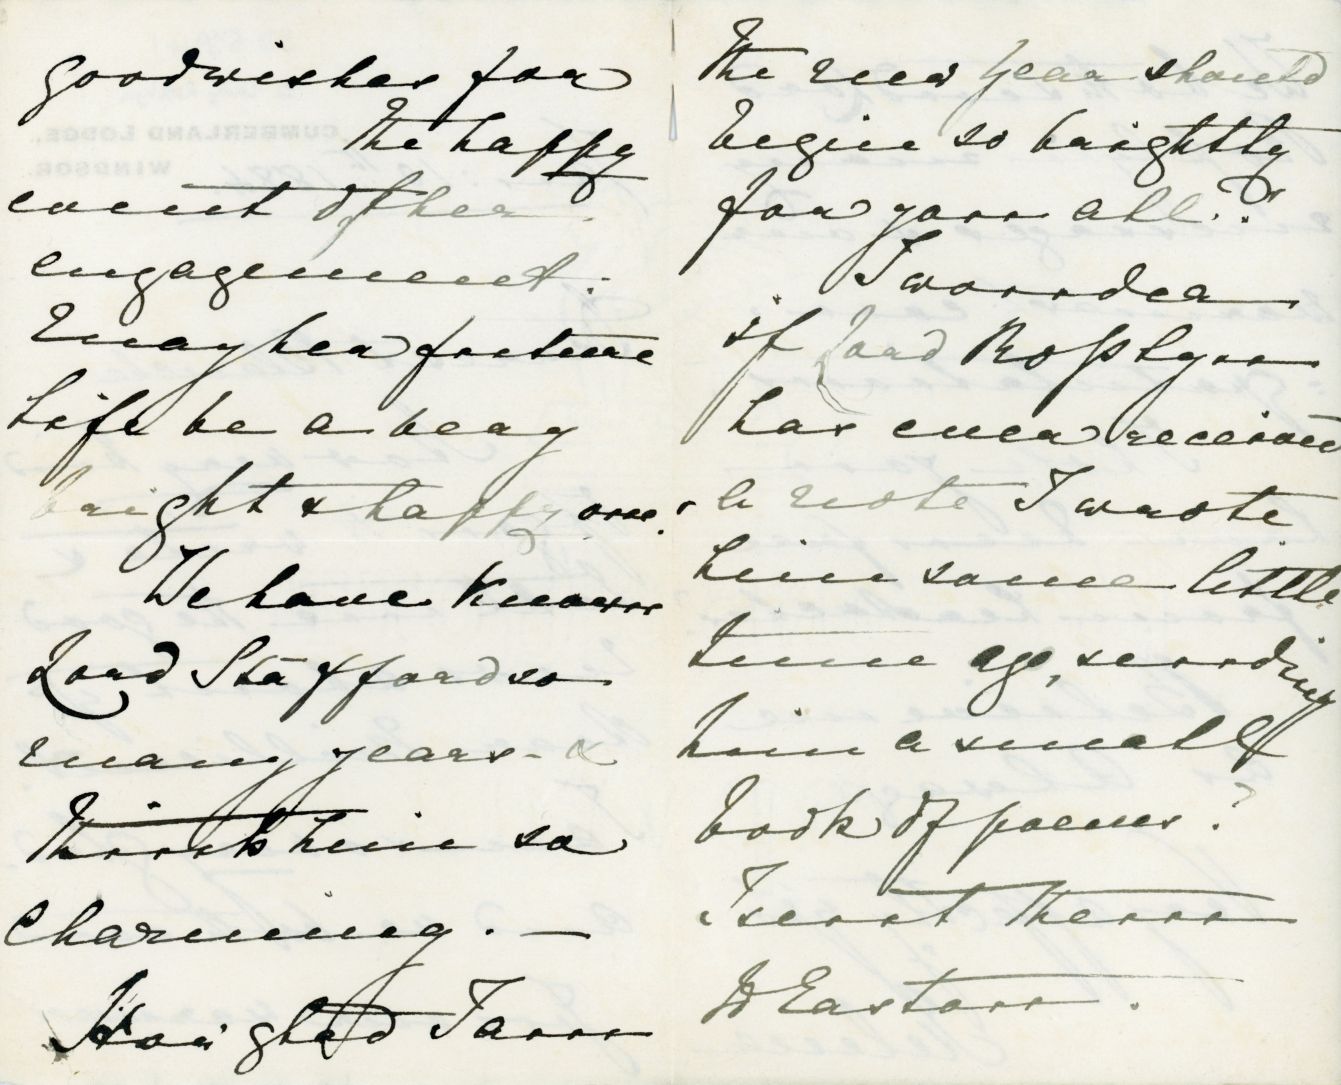 goodwishes for
the happy
event of her
engagement.
May her future
life be a very
bright & happy one!
We have known
Lord Stafford so
many years - &
think him so
charming. —
How glad I am
the new year should
begin so brightly
for you all. 
I wonder
if Lord Rosslyn
has ever received
a note I wrote
him some little
time ago, sending
him a small
book of poems?
I sent them
to Easton.
CUMBERLAND LODGE,
WINDSOR.